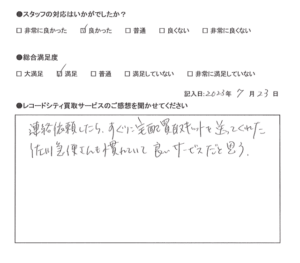 ●スタッフの対応はいかがでしたか？
□ 非常に良かった ☑ 良かった □ 普通 □ 良くない □ 非常に良くない
●総合満足度
□ 大満足 ☑ 満足 □ 普通 □ 満足していない □ 非常に満足していない
記入日:2023年 9月 23日
●レコードシティ買取サービスのご感想を聞かせてください
連絡依頼したら、すぐに宅配買取キットを送ってくれた
佐川急便さんも慣れていて良いサービスだと思う。